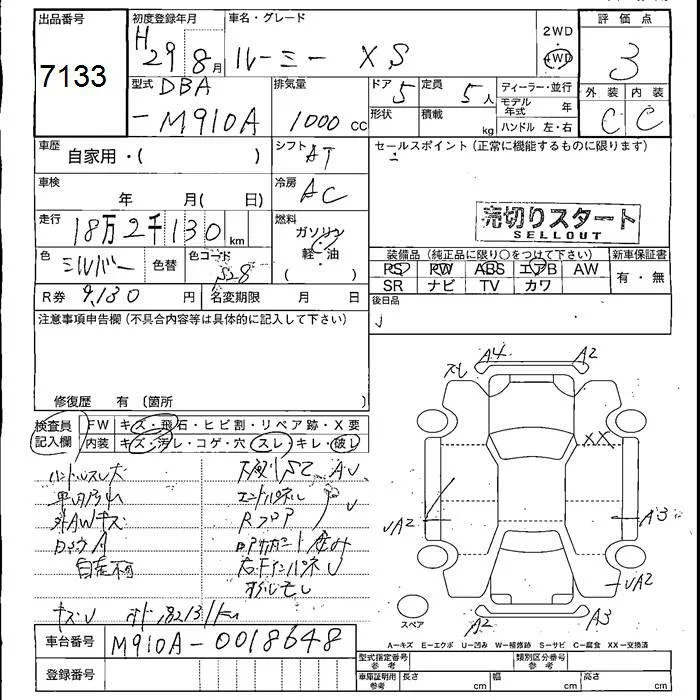 出品番号
7133
初度登録年月
H29 8月
車名・グレード
ルーミー XS
2WD
4WD
評価点
3
外装 内装
C C
型式 DBA
-M910A
排気量
1000 cc
ドア 5
定員 5人
ディーラー・並行
モデル年式 年
形状
積載 kg
ハンドル 左・右
車歴 自家用・( )
シフト AT
セールスポイント(正常に機能するものに限ります)
車検 年 月( 日)
冷房 AC
走行 18万2千130km
燃料
ガソリン
軽・油
( )
売切りスタート
SELLOUT
色 シルバー
色替
色コード S28
装備品(純正品に限り○をつけて下さい)
新車保証書
PS PW ABS エアB AW
SR ナビ TV カワ
有・無
R券 9,130円
名変期限 月 日
後日品
注意事項申告欄(不具合内容等は具体的に記入して下さい)
修復歴 有(箇所 )
検査員記入欄
FW キズ・飛石・ヒビ割・リペア跡・X要
内装 キズ・汚レ・コゲ・穴 スレ・キレ・破レ
ハンドルスレ大
外AWキズ
Rフロア
自走不可
A4 A2
XX
UA2
A3
UA2
A2 A3
スペア
A-キズ E-エクボ U-凹み W-補修跡 S-サビ C-腐食 XX-交換済
車台番号 M910A-0018648
型式指定番号 参考
類別区分番号 参考
登録番号
車庫証明用 参考
長さ cm
幅 cm
高さ cm